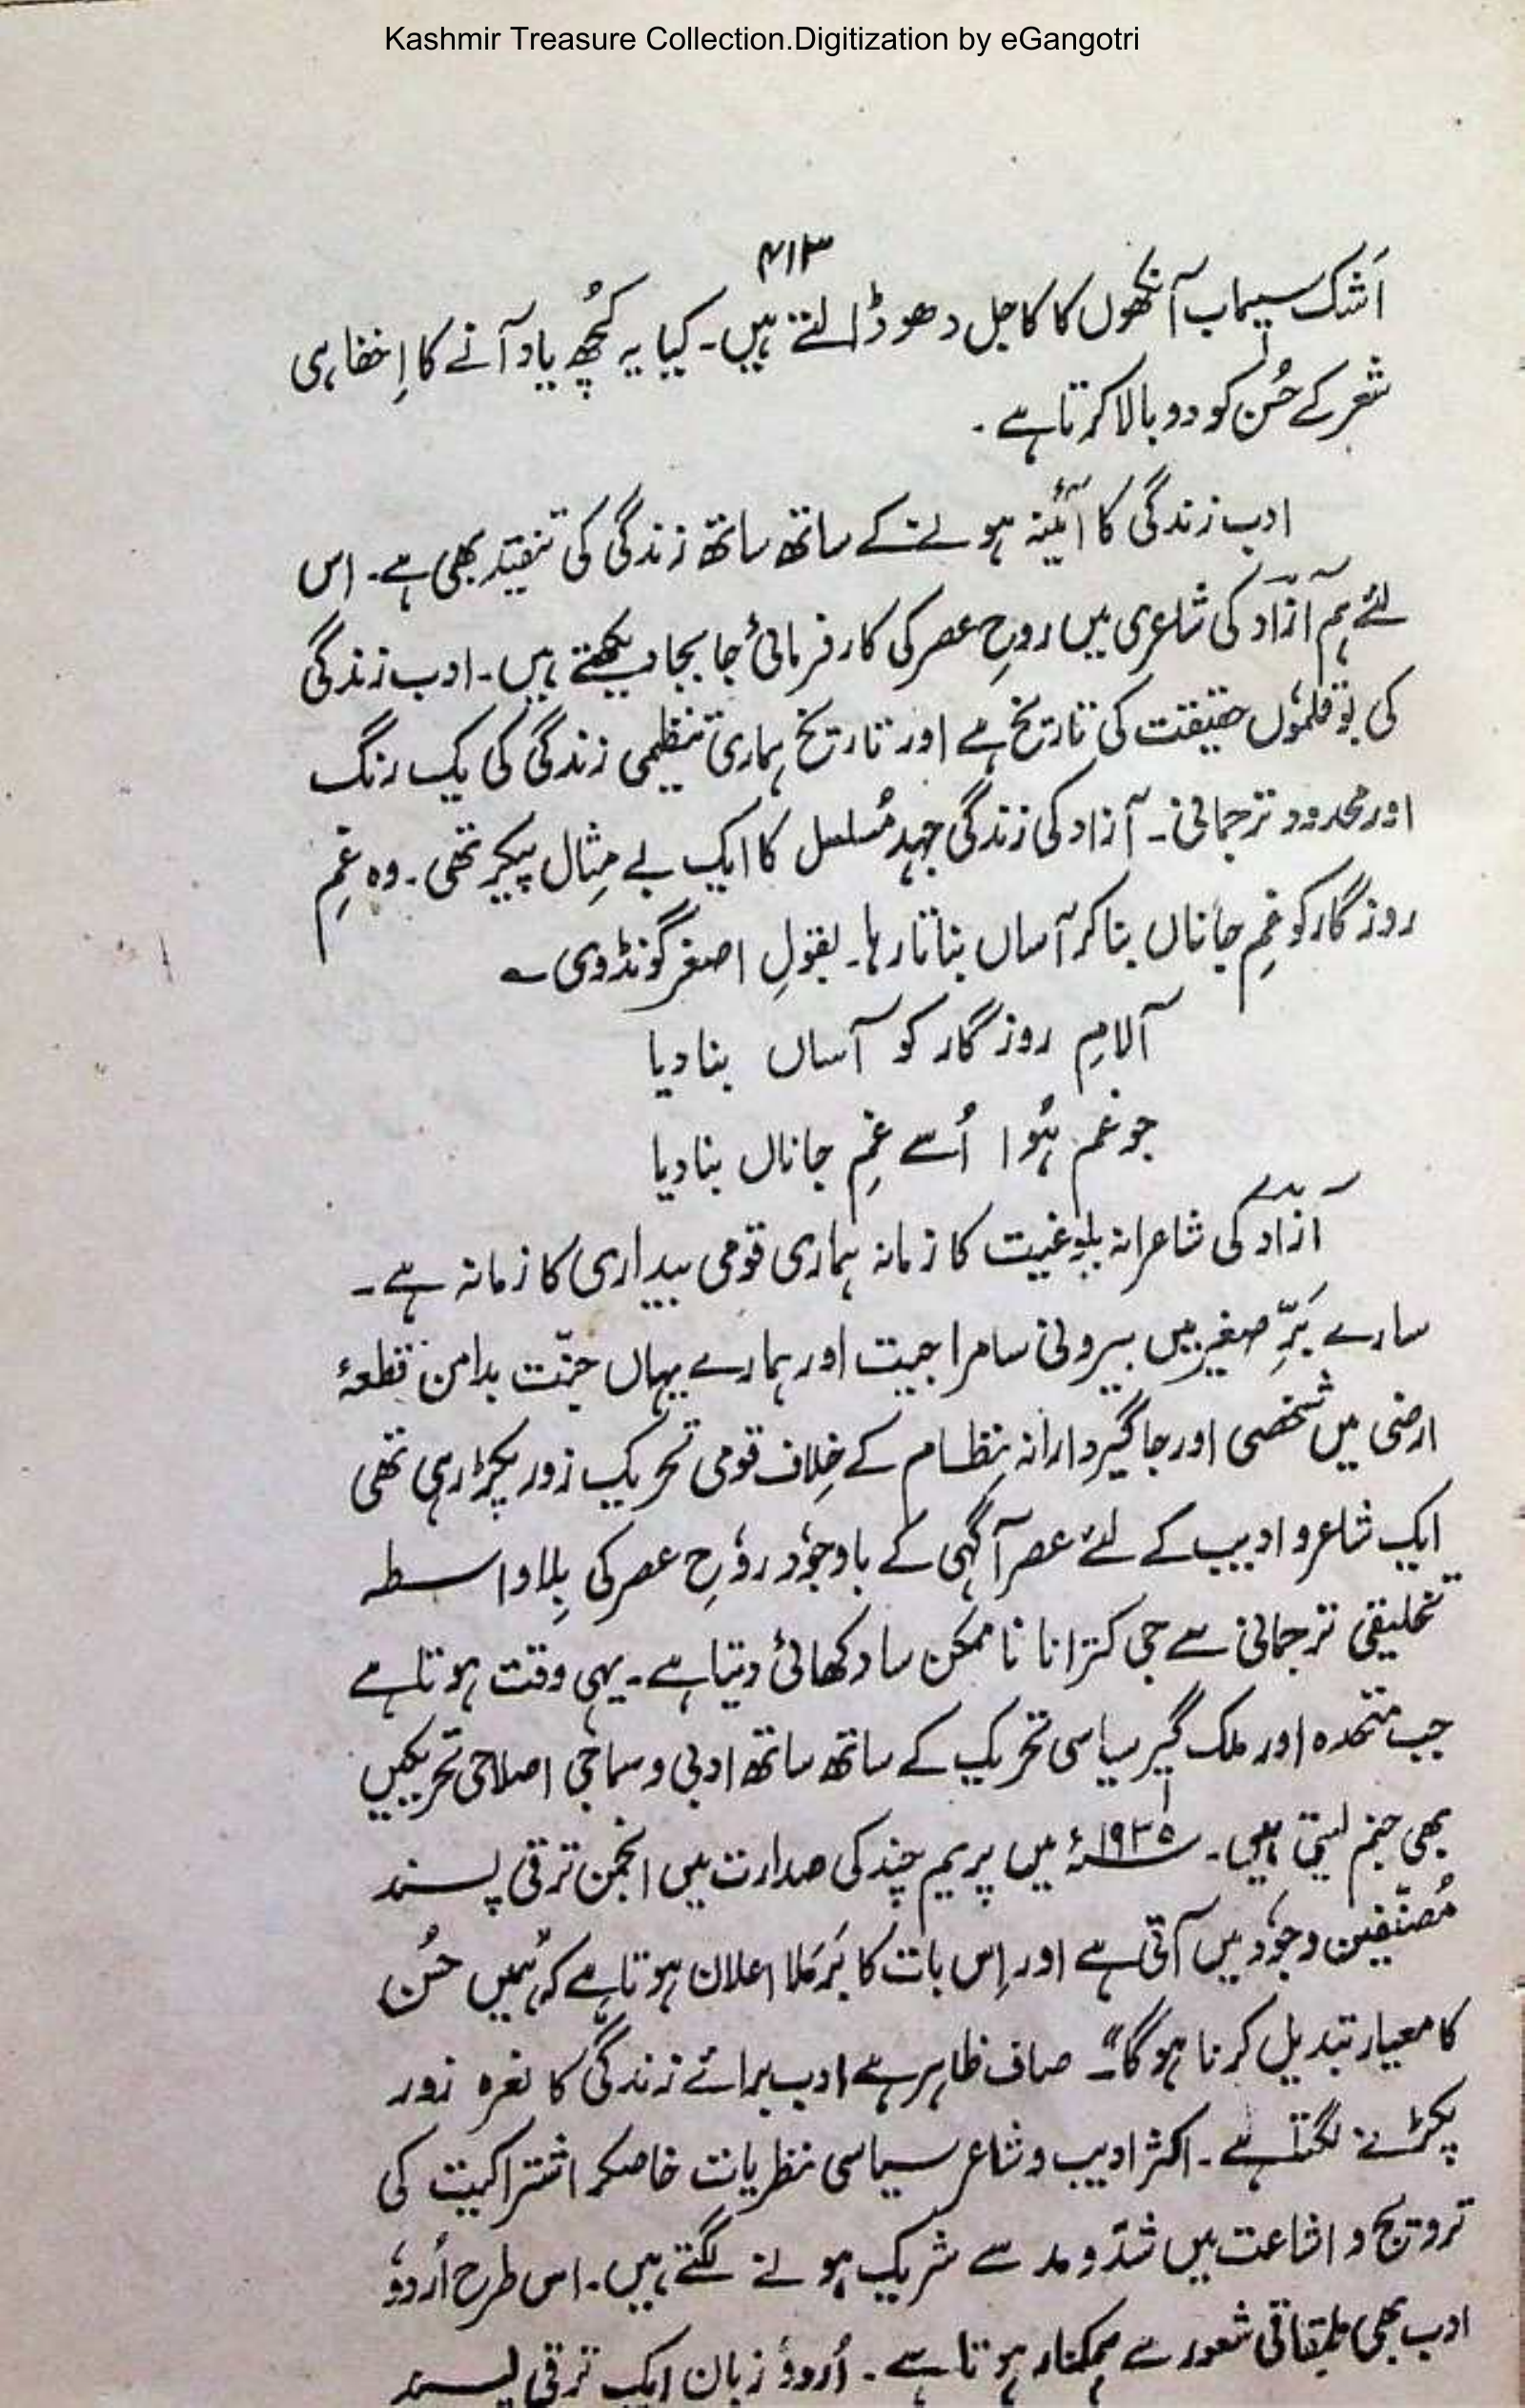 Kashmir Treasure Collection.Digitization by eGangotri
۴۱۳
اَشک سیماب آنکھوں کا کاجل دھو ڈالتے ہیں۔ کیا یہ کُچھ یاد آنے کا اِخفا ہی
شعر کے حُسن کو دوبالا کرتا ہے۔
ادب زندگی کا آئینہ ہونے کے ساتھ ساتھ زندگی کی تنقید بھی ہے۔ اس
لئے ہم آزاد کی شاعری میں روحِ عصر کی کارفرمائی جا بجا دیکھتے ہیں۔ ادب زندگی
کی بوقلموں حقیقت کی تاریخ ہے اور تاریخ ہماری تنظیمی زندگی کی یک رنگ
اور محدود ترجمانی۔ آزاد کی زندگی جہدِ مُسلسل کا ایک بے مِثال پیکر تھی۔ وہ غمِ
روزگار کو غمِ جاناں بنا کر آساں بناتا رہا۔ بقولِ اصغر گونڈوی ؎
آلامِ روزگار کو آساں بنا دیا
جو غم ہُوا اُسے غمِ جاناں بنا دیا
آزاد کی شاعرانہ بلوغیت کا زمانہ ہماری قومی بیداری کا زمانہ ہے۔
سارے بَرِّ صغیر میں بیرونی سامراجیت اور ہمارے یہاں جنّت بدامن قطعۂ
ارضی میں شخصی اور جاگیردارانہ نِظام کے خِلاف قومی تحریک زور پکڑ رہی تھی
ایک شاعر و ادیب کے لئے عصر آگہی کے باوجود روحِ عصر کی بِلاواسطہ
تخلیقی ترجمانی سے جی کترانا ناممکن سا دکھائی دیتا ہے۔ یہی وقت ہوتا ہے
جب متحدہ اور ملک گیر سیاسی تحریک کے ساتھ ساتھ ادبی و سماجی اصلاحی تحریکیں
بھی جنم لیتی ہیں۔ ۱۹۳۵ء میں پریم چند کی صدارت میں انجمن ترقی پسند
مُصنّفین وجود میں آتی ہے اور اِس بات کا بَرمَلا اعلان ہوتا ہے کہ "ہمیں حُسن
کا معیار تبدیل کرنا ہوگا"۔ صاف ظاہر ہے ادب برائے زندگی کا نعرہ زور
پکڑنے لگتا ہے۔ اکثر ادیب و شاعر سیاسی نظریات خاصکر اشتراکیت کی
ترویج و اشاعت میں شدّ و مد سے شریک ہونے لگتے ہیں۔ اس طرح اُردو
ادب بھی طبقاتی شعور سے ہمکنار ہوتا ہے۔ اُردو زبان ایک ترقی پسند